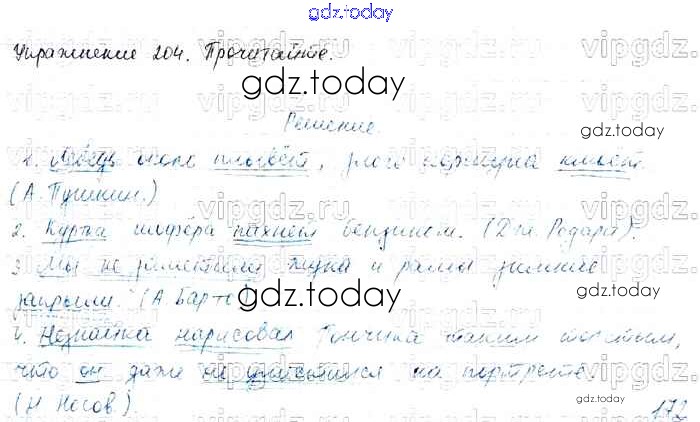 gdz.today
Упражнение 204. Прочитайте.
gdz.today
Решение.
gdz.today
1. Лебедь около плывёт, злого коршуна клюёт.
(А. Пушкин.)
2. Куртка шофёра пахнет бензином. (Дж. Родари).
3. Мы не заметили жука и рамы зимние
закрыли. (А. Барто)
gdz.today
4. Незнайка нарисовал Пончика таким толстым,
что он даже не уместился на портрете.
gdz.today
(Н. Носов.)
172